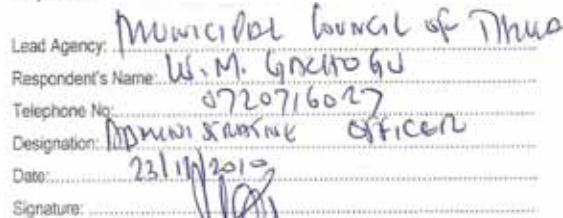 Lead Agency: MUNICIPAL COUNCIL OF THIKA
Respondent's Name: W.M. GACHOGU
Telephone No: 0720716027
Designation: ADMINISTRATIVE OFFICER
Date: 23/11/2010
Signature: